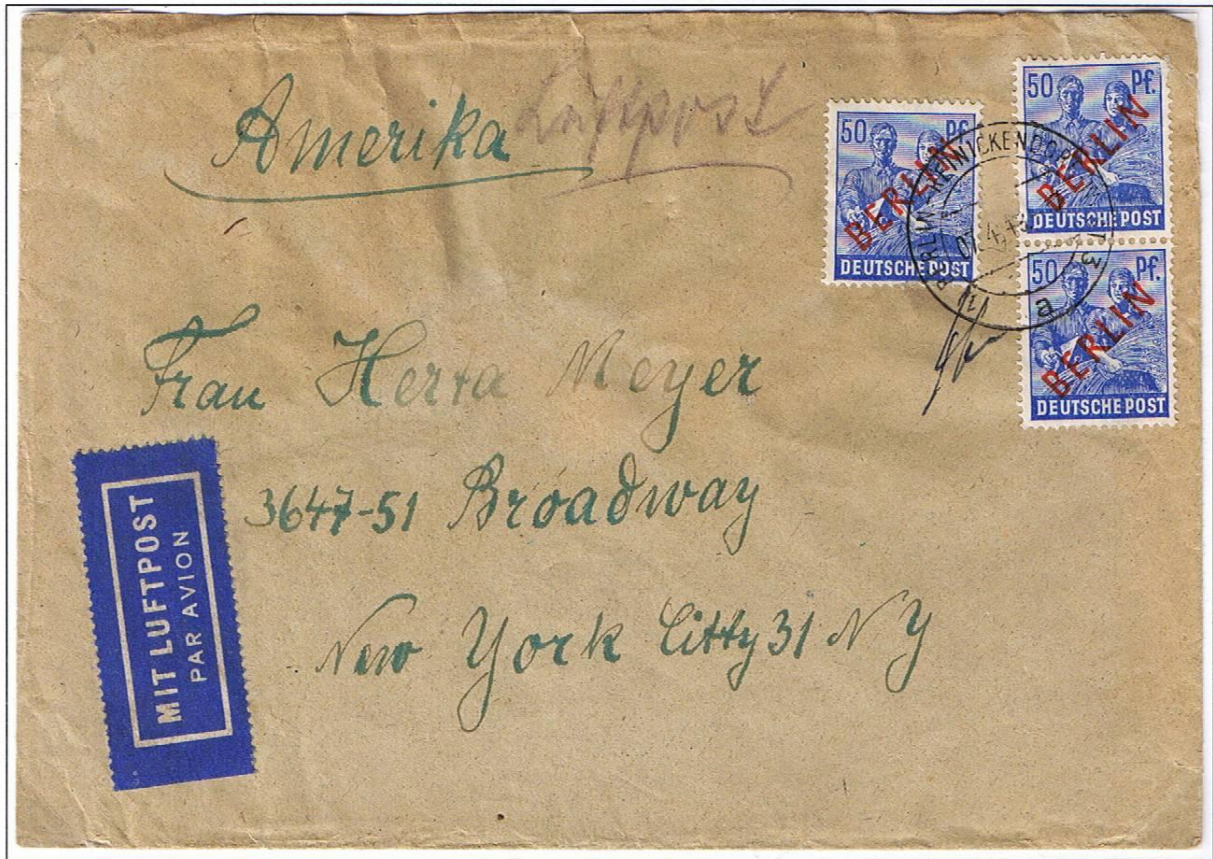 Amerika Luftpost
50 Pf.
BERLIN
DEUTSCHE POST
50 Pf.
BERLIN
DEUTSCHE POST
50 Pf.
BERLIN
DEUTSCHE POST
Frau Herta Meyer
3647-51 Broadway
New York Citty 31 NY
MIT LUFTPOST
PAR AVION